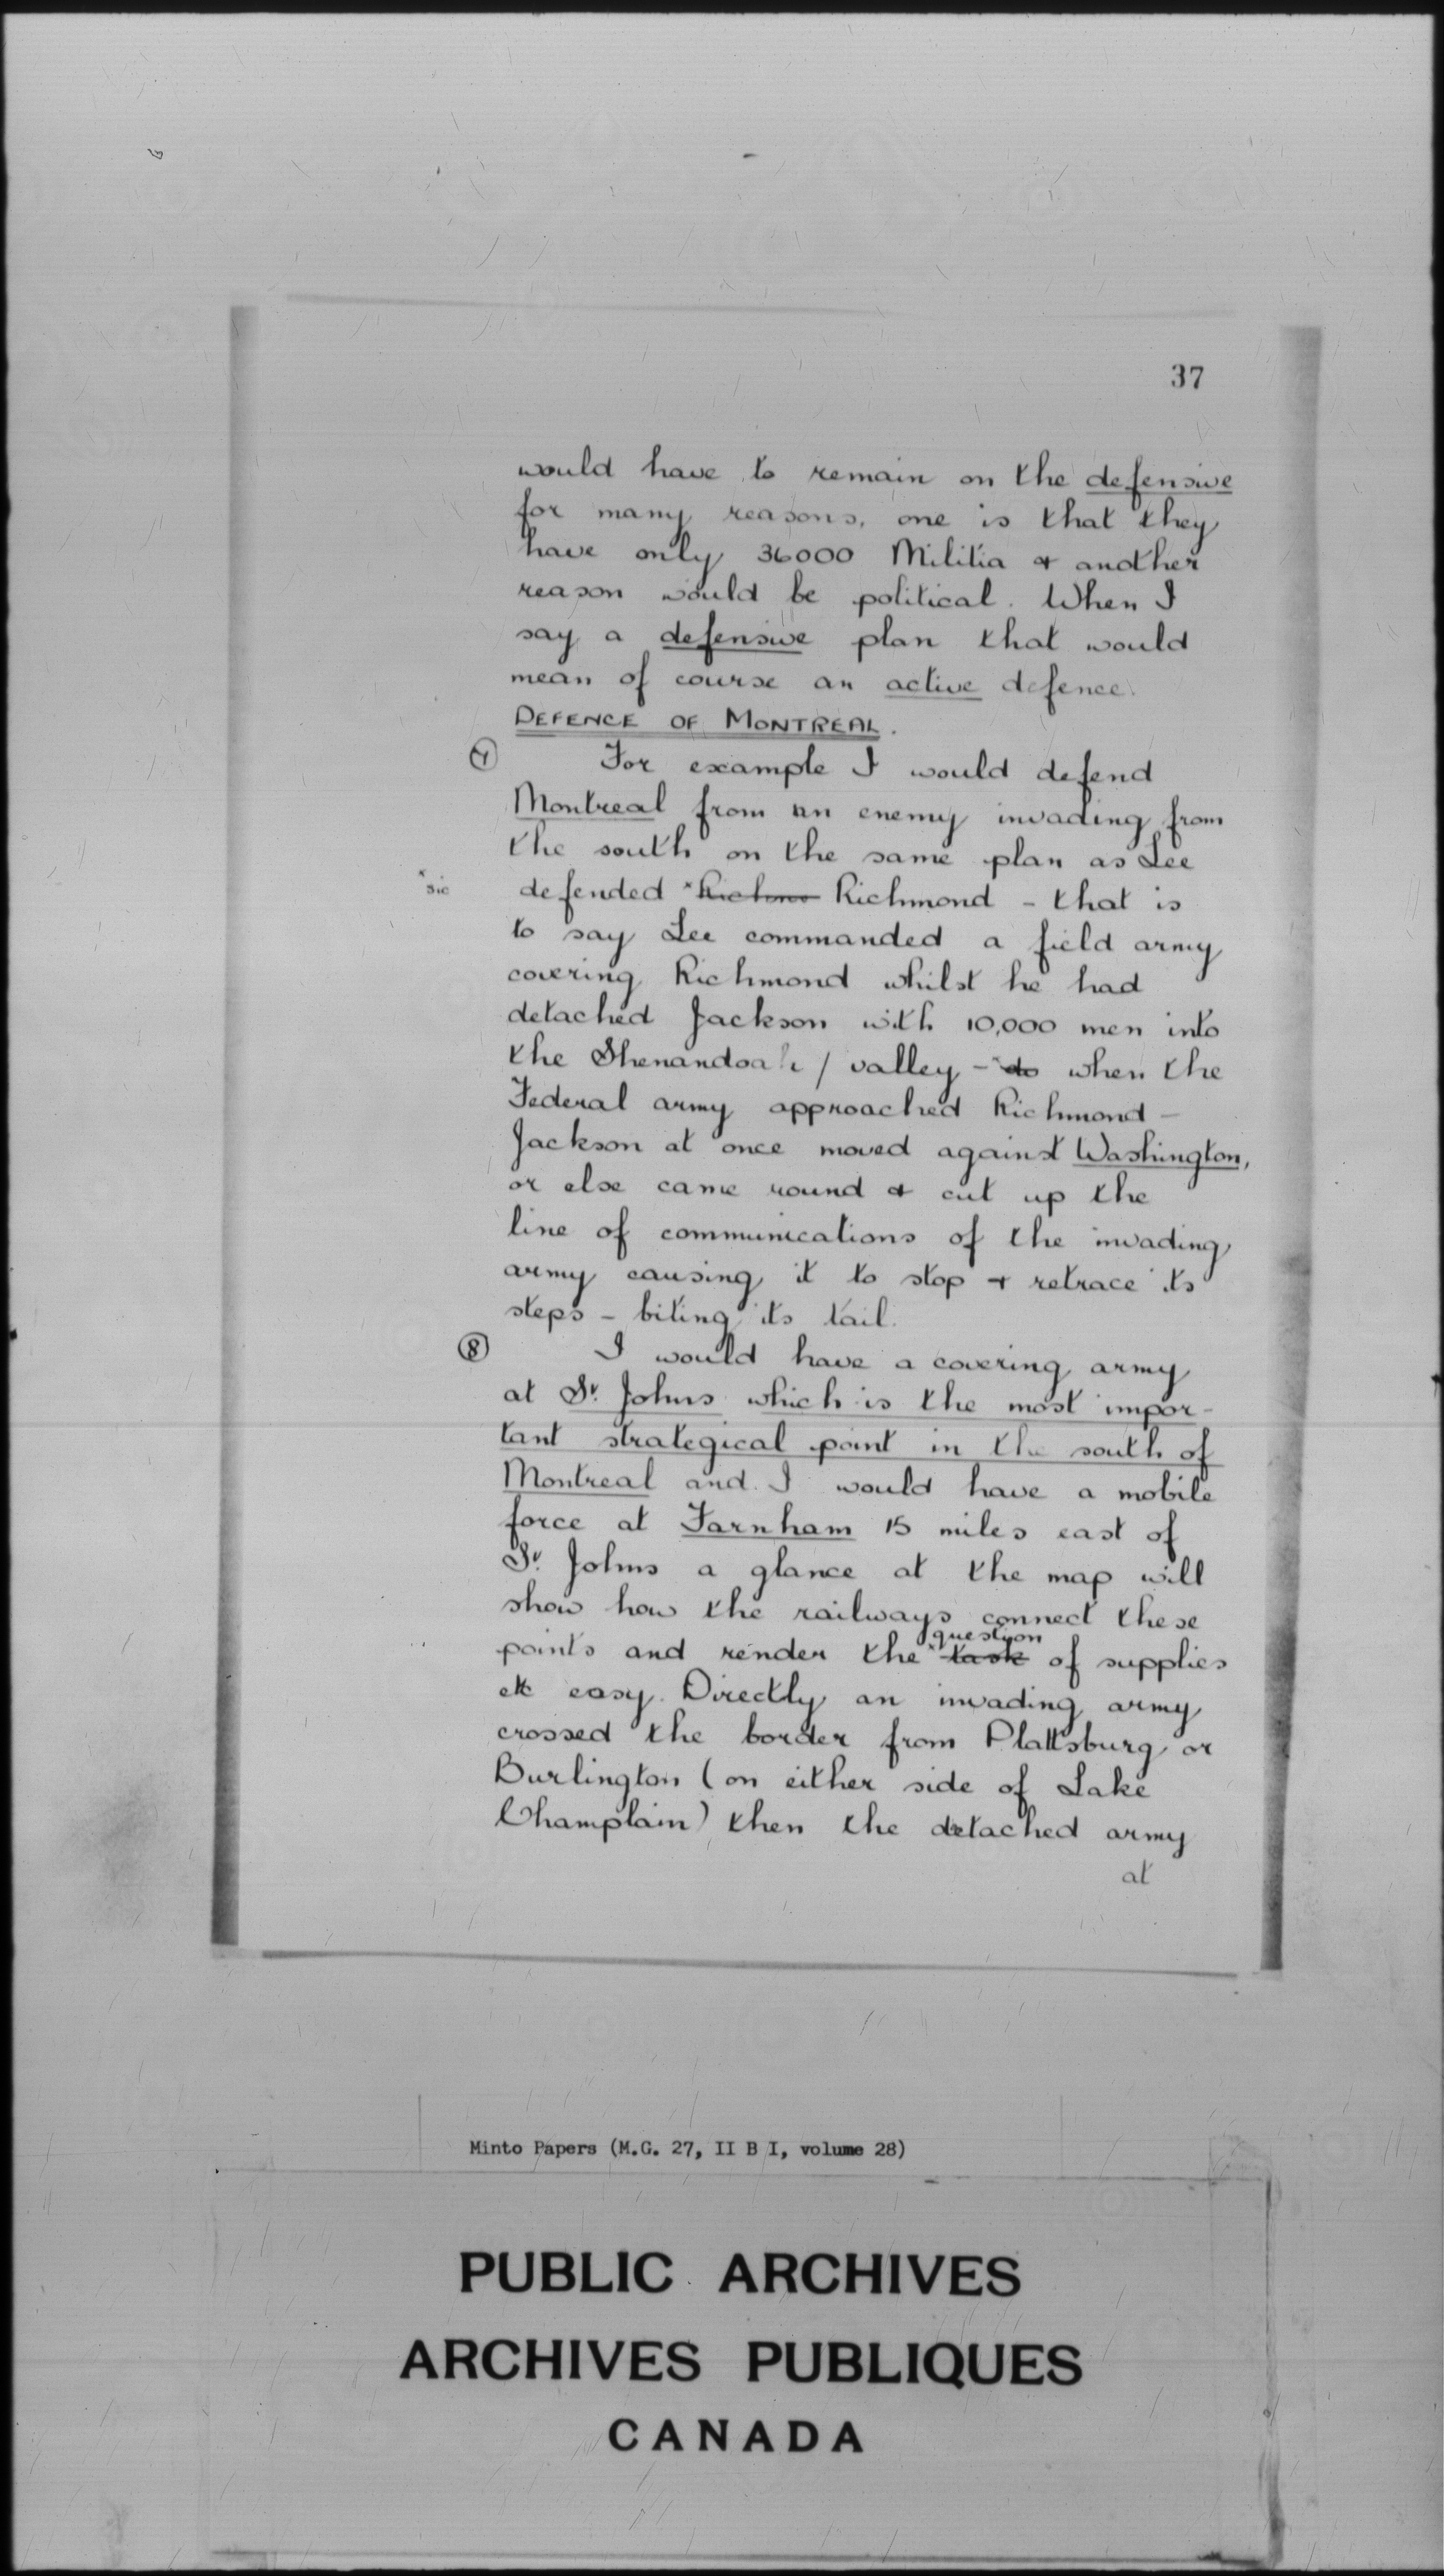 37
would have to remain on the defensive
for many reasons, one is that they
have only 36000 Militia & another
reason would be political. When I
say a defensive plan that would
mean of course an active defence.
DEFENCE OF MONTREAL.
7 For example I would defend
Montreal from an enemy invading from
the south on the same plan as Lee
x sic defended x Richmo Richmond - that is
to say Lee commanded a field army
covering Richmond whilst he had
detached Jackson with 10,000 men into
the Shenandoah / valley - x do when the
Federal army approached Richmond -
Jackson at once moved against Washington,
or else came round & cut up the
line of communications of the invading
army causing it to stop & retrace its
steps - biting its tail.
8 I would have a covering army
at St. Johns which is the most impor-
tant strategical point in the south of
Montreal and I would have a mobile
force at Farnham 15 miles east of
St. Johns a glance at the map will
show how the railways connect these
question
points and render the x task of supplies
etc easy. Directly an invading army
crossed the border from Plattsburg or
Burlington (on either side of Lake
Champlain) then the detached army
at
Minto Papers (M.G. 27, II B I, volume 28)
PUBLIC ARCHIVES
ARCHIVES PUBLIQUES
CANADA